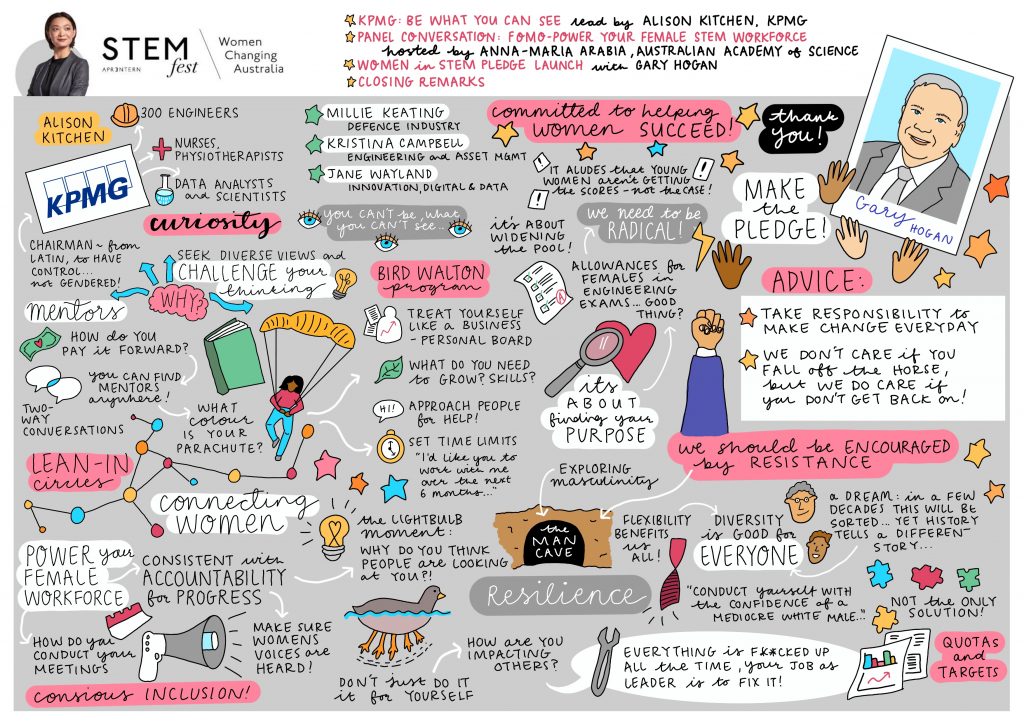 STEM
APR3NTERN
fest
Women
Changing
Australia
KPMG: BE WHAT YOU CAN SEE read by ALISON KITCHEN, KPMG
PANEL CONVERSATION: FOMO-POWER YOUR FEMALE STEM WORKFORCE
hosted by ANNA-MARIA ARABIA, AUSTRALIAN ACADEMY of SCIENCE
WOMEN in STEM PLEDGE LAUNCH with GARY HOGAN
CLOSING REMARKS
ALISON
KITCHEN
300 ENGINEERS
NURSES,
PHYSIOTHERAPISTS
DATA ANALYSTS
and SCIENTISTS
KPMG
CHAIRMAN ~ from
LATIN, to HAVE
CONTROL...
not GENDERED!
MILLIE KEATING
DEFENCE INDUSTRY
KRISTINA CAMPBELL
ENGINEERING and ASSET MGMT
JANE WAYLAND
INNOVATION, DIGITAL & DATA
committed to helping
WOMEN SUCCEED!
thank
you!
IT ALUDES that YOUNG
WOMEN aren't GETTING
the SCORES - not the CASE!
MAKE
the
PLEDGE!
Gary
HOGAN
curiosity
you CAN'T be, what
you CAN'T SEE...
it's ABOUT
WIDENING
the POOL!
we need to be
RADICAL!
SEEK DIVERSE VIEWS and
CHALLENGE your
thinking
WHY?
BIRD WALTON
program
ALLOWANCES for
FEMALES in
ENGINEERING
EXAMS... GOOD
THING?
A
ADVICE:
TAKE RESPONSIBILITY to
MAKE CHANGE EVERYDAY
WE DON'T CARE if YOU
FALL off the HORSE,
but WE DO CARE if
you DON'T GET BACK on!
mentors
HOW do YOU
PAY it FORWARD?
you CAN FIND
MENTORS
anywhere!
TWO-
WAY
CONVERSATIONS
WHAT
colour
IS YOUR
PARACHUTE?
TREAT YOURSELF
LIKE A BUSINESS
- PERSONAL BOARD
WHAT DO YOU NEED
to GROW? SKILLS?
HI!
APPROACH PEOPLE
for HELP!
SET TIME LIMITS
"I'd like you to
work with me
over the next
6 months..."
it's
ABOUT
finding your
PURPOSE
we should be ENCOURAGED
by RESISTANCE
LEAN-IN
circles
connecting
WOMEN
the LIGHTBULB
moment:
WHY DO YOU THINK
PEOPLE are LOOKING
at YOU?!
EXPLORING
masculinity
the
MAN
CAVE
FLEXIBILITY
BENEFITS
us
ALL!
DIVERSITY
is GOOD for
EVERYONE
a DREAM: in a FEW
DECADES THIS WILL BE
SORTED... YET HISTORY
TELLS a DIFFERENT
STORY...
POWER your
FEMALE
WORKFORCE
CONSISTENT with
ACCOUNTABILITY
for PROGRESS
Resilience
"CONDUCT yourself WITH
THE CONFIDENCE of a
MEDIOCRE WHITE MALE..."
NOT the ONLY
SOLUTION!
HOW DO you
CONDUCT your
MEETINGS
MAKE SURE
WOMENS
VOICES are
HEARD!
DON'T just DO IT
it for YOURSELF
HOW are YOU
IMPACTING
OTHERS?
EVERYTHING is F**CKED UP
ALL the TIME, your JOB as
LEADER is to FIX IT!
QUOTAS
and
TARGETS
consious INCLUSION!